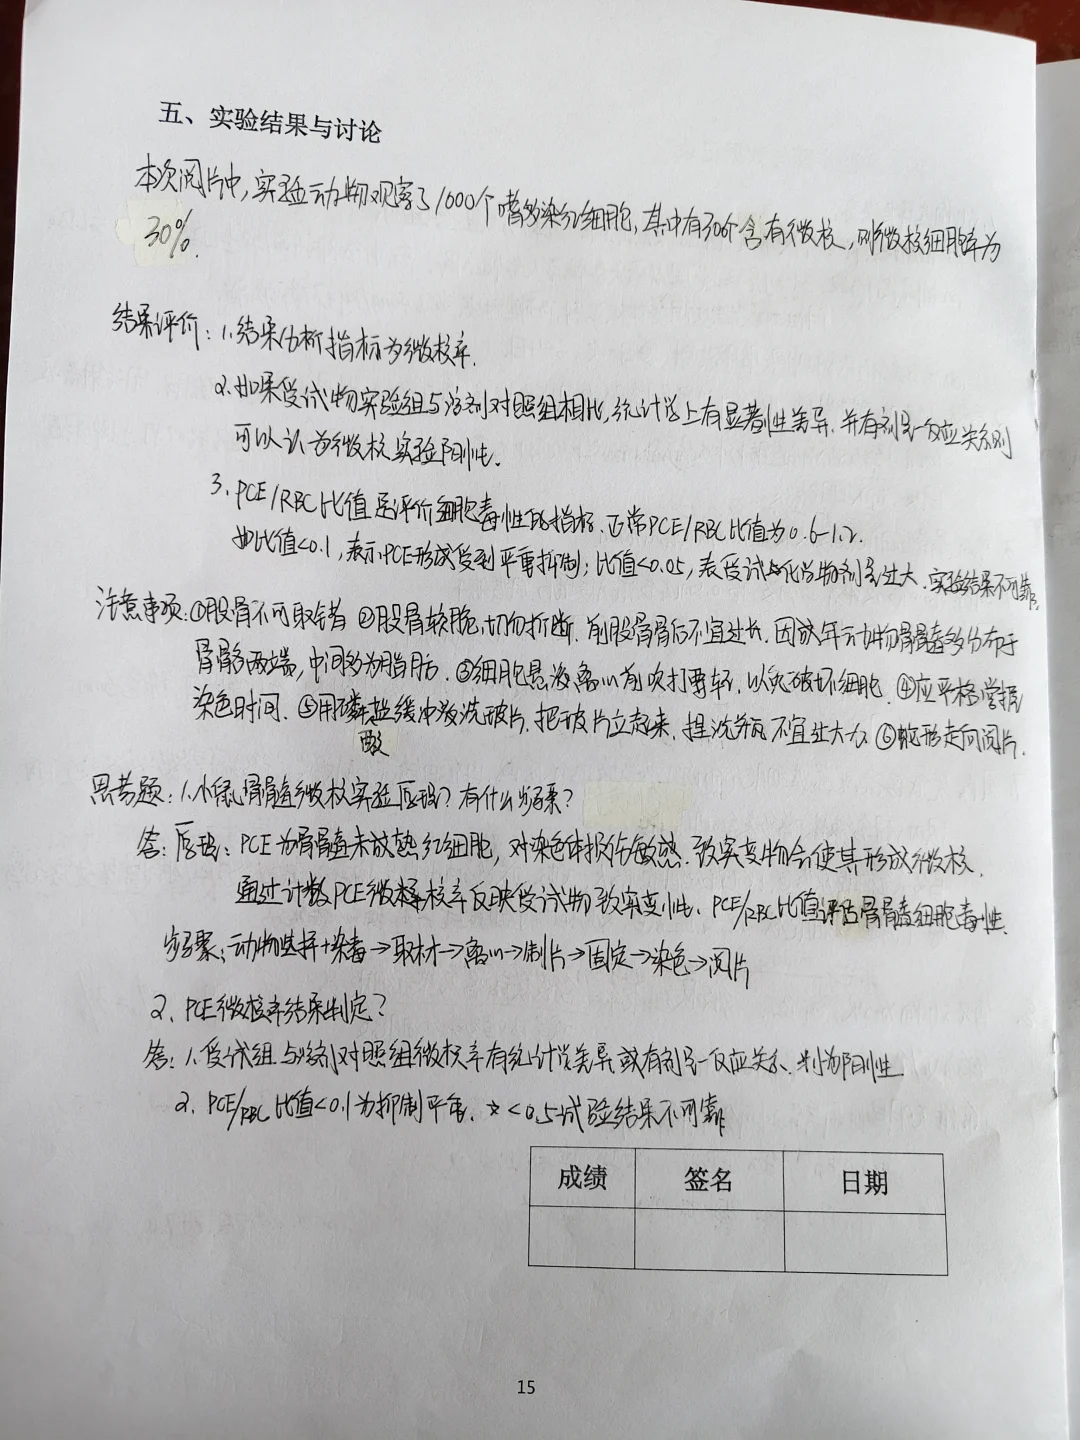 五、实验结果与讨论
本次阅片中，实验动物观察了1000个嗜多染红细胞，其中有300个含有微核，则微核细胞率为
30%.
结果评价：1.结果分析指标为微核率.
2.如果受试物实验组与溶剂对照组相比，统计学上有显著性差异，并有剂量-反应关系则
可以认为微核实验阳性.
3.PCE/RBC比值是评价细胞毒性的指标.正常PCE/RBC比值为0.6-1.2.
如比值<0.1，表示PCE形成受到严重抑制；比值<0.05，表受试化学物剂量过大.实验结果不可靠.
注意事项：①股骨不可取错 ②股骨较脆，切勿折断.削股骨骨后不宜过长.因成年动物骨髓多分布于
骨骼两端，中间多为脂肪.③细胞悬液离心前吹打要轻，以免破坏细胞.④应严格掌握
染色时间.⑤用磷酸盐缓冲液洗玻片，把玻片立起来，捏洗瓶不宜过大力 ⑥蛇形走向阅片.
思考题：1.小鼠骨髓微核实验原理？有什么步骤？
答：原理：PCE为骨髓未成熟红细胞，对染色体损伤敏感.致突变物会使其形成微核.
通过计数PCE微核率反映受试物致突变性、PCE/RBC比值评估骨髓细胞毒性.
步骤：动物选择+染毒→取材→离心→制片→固定→染色→阅片
2、PCE微核率结果判定？
答：1.受试组与溶剂对照组微核率有统计学差异或有剂量-反应关系、判为阳性
2.PCE/RBC比值<0.1为抑制严重.<0.5试验结果不可靠
成绩 签名 日期
15